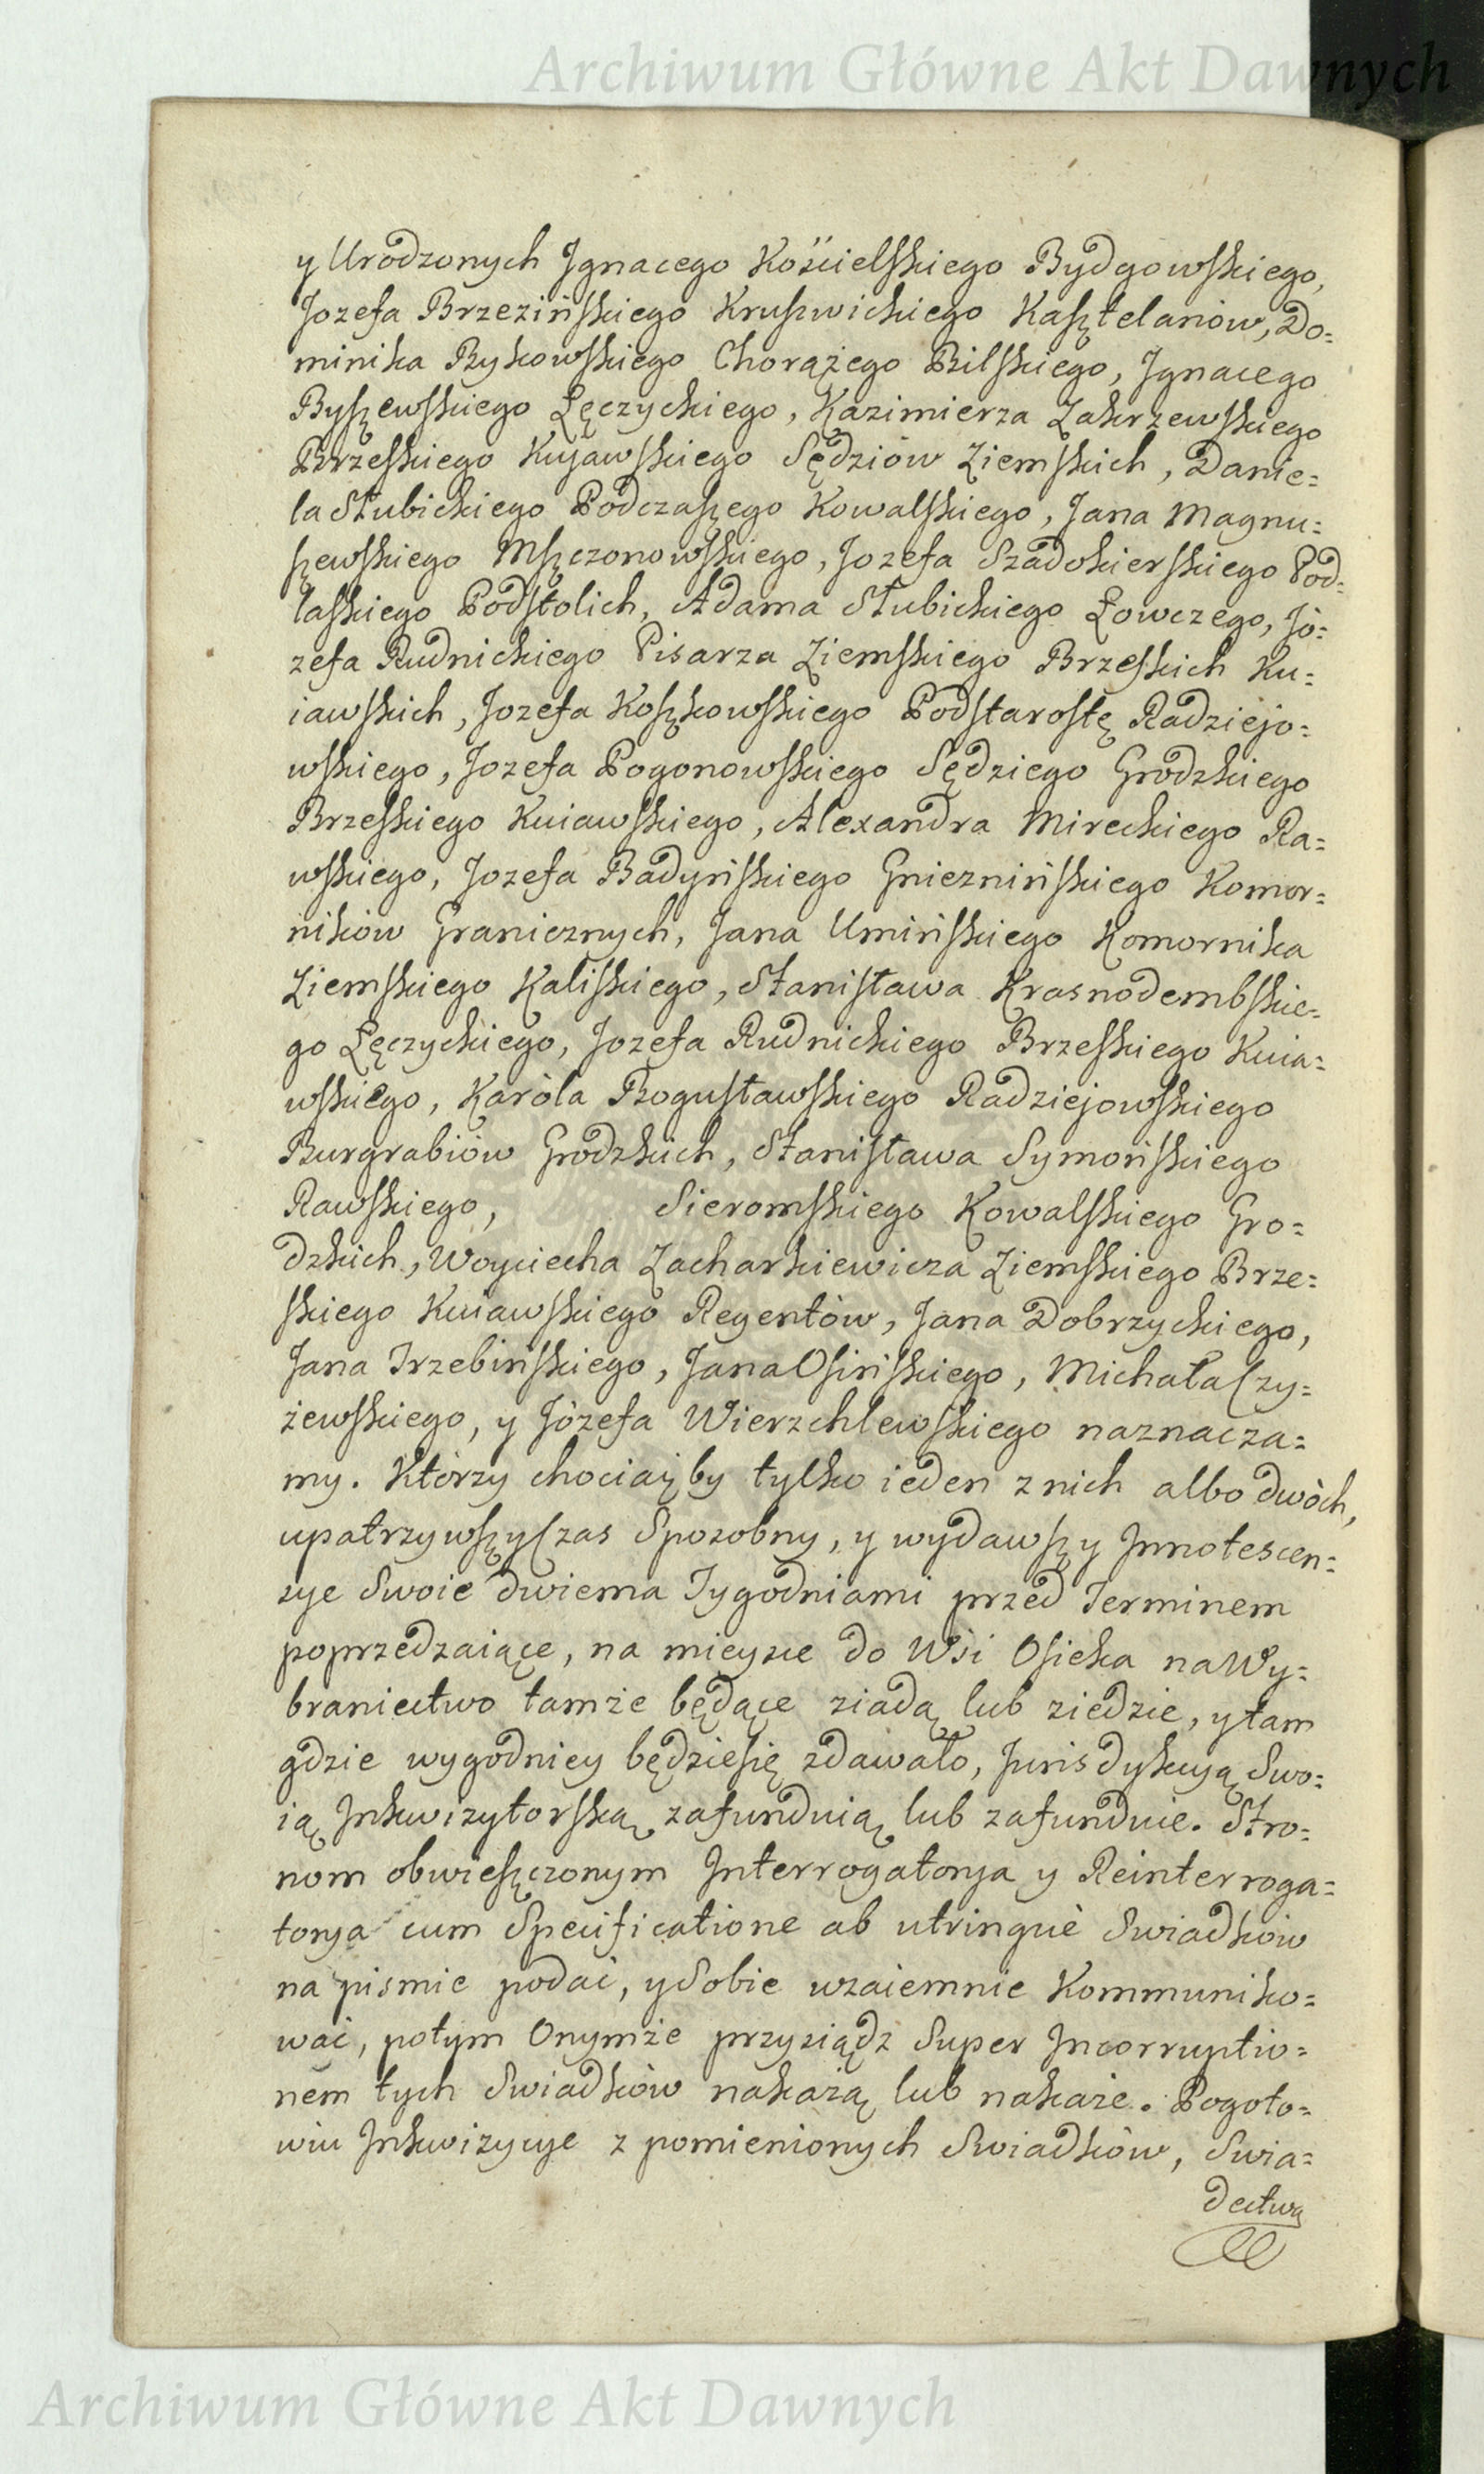 Archiwum Główne Akt Dawnych
y Urodzonych Jgnacego Kościelskiego Bydgowskiego,
Jozefa Brzezińskiego Kruszwickiego Kasztelanów, Do=
minika Rykowskiego Chorążego Bilskiego, Jgnacego
Byszewskiego Łęczyckiego, Kazimierza Zakrzewskiego
Brzeskiego Kujawskiego Sędziów Ziemskich, Danie=
la Słubickiego Podczaszego Kowalskiego, Jana Magnu=
szewskiego Mszczonowskiego, Jozefa Szadokierskiego Pod=
laskiego Podstolich, Adama Słubickiego Łowczego, Jó=
zefa Rudnickiego Pisarza Ziemskiego Brzeskich Ku=
iawskich, Jozefa Koszkowskiego Podstarostę Radziejo=
wskiego, Jozefa Pogonowskiego Sędziego Grodzkiego
Brzeskiego Kuiawskiego, Alexandra Mireckiego Ra=
wskiego, Jozefa Badyńskiego Gnieznińskiego Komor=
ników Granicznych, Jana Umińskiego Komornika
Ziemskiego Kaliskiego, Stanisława Krasnodembskie=
go Łęczyckiego, Jozefa Rudnickiego Brzeskiego Kuia=
wskiego, Karóla Bogusławskiego Radziejowskiego
Burgrabiów Grodzkich, Stanisława Symońskiego
Rawskiego, Sieromskiego Kowalskiego Gro=
dzkich, Woyciecha Zacharkiewicza Ziemskiego Brze=
skiego Kuiawskiego Regentów, Jana Dobrzyckiego,
Jana Trzebińskiego, Jana Osińskiego, Michała Czy=
żewskiego, y Józefa Wierzchlewskiego naznacza=
my. Którzy chociażby tylko ieden z nich albo dwóch,
upatrzywszy Czas Sposobny, y wydawszy Jnnotescen=
cye Swoie dwiema Tygodniami przed Terminem
poprzedzaiące, na mieysce do Wsi Osieka na Wy=
braniectwo tamże będące ziadą lub ziedzie, y tam
gdzie wygodniey będzie się zdawało, Jurisdykcyą Swo=
ią Jnkwizytorską zafunduią lub zafunduie. Stro=
nom obwieszczonym Jnterrogatorya y Reinterroga=
torya cum Specificatione ab utrinque Swiadków
na pismie podać, y Sobie wzaiemnie Kommuniko=
wać, potym Onymże przysiądz Super Jncorruptio=
nem tych Swiadków nakażą lub nakaże. Pogoto=
wiu Jnkwizycye z pomienionych Swiadków, Swia=
dectwa
Archiwum Główne Akt Dawnych